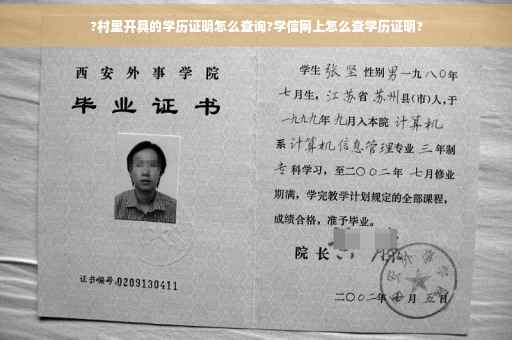 ?村里开具的学历证明怎么查询?学信网上怎么查学历证明?
西安外事学院
毕业证书
证书编号:0209130411
学生 张坚 性别 男 一九八〇年
七月生，江苏省 苏州 县(市)人，于
一九九九年 九月入本院 计算机
系 计算机信息管理 专业 三 年制
专科学习，至二〇〇二年 七月修业
期满，学完教学计划规定的全部课程，
成绩合格，准予毕业。
院长
二〇〇二年 七 月 五 日